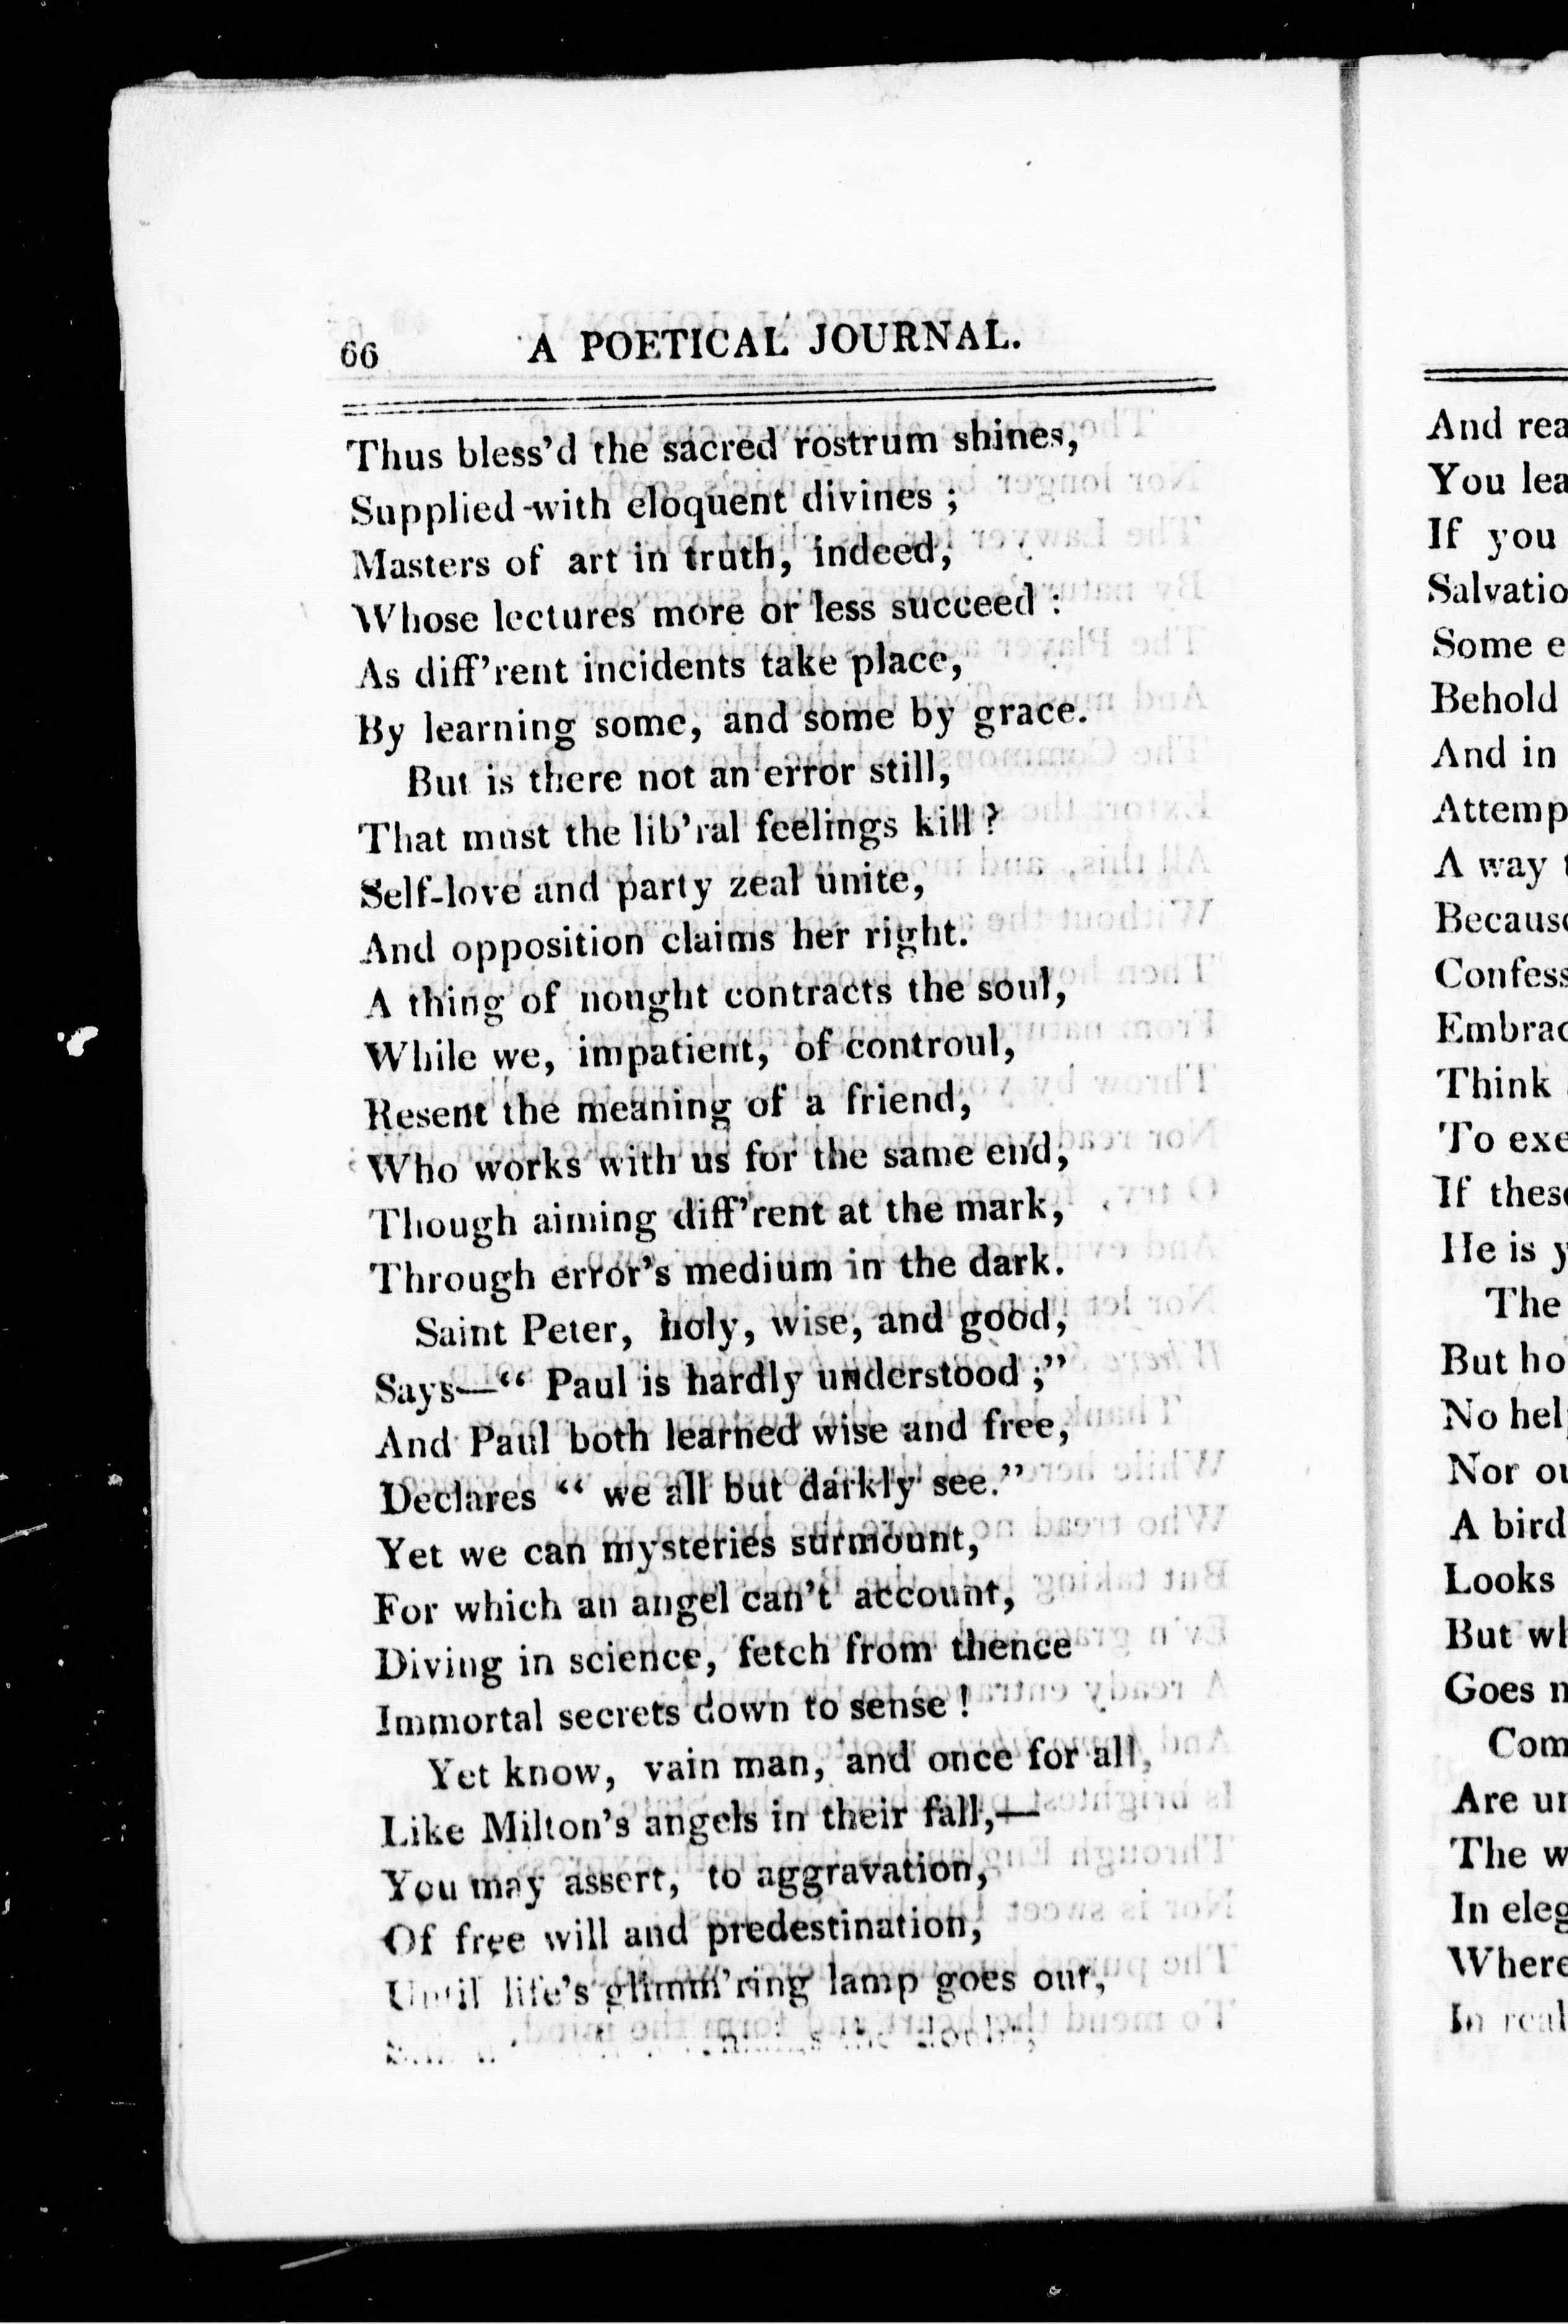 66 A POETICAL JOURNAL.
Thus bless'd the sacred rostrum shines,
Supplied with eloquent divines ;
Masters of art in truth, indeed,
Whose lectures more or less succeed :
As diff'rent incidents take place,
By learning some, and some by grace.
But is there not an error still,
That must the lib'ral feelings kill ?
Self-love and party zeal unite,
And opposition claims her right.
A thing of nought contracts the soul,
While we, impatient, of controul,
Resent the meaning of a friend,
Who works with us for the same end,
Though aiming diff'rent at the mark,
Through error's medium in the dark.
Saint Peter, holy, wise, and good,
Says—“ Paul is hardly understood ;”
And Paul both learned wise and free,
Declares “ we all but darkly see.”
Yet we can mysteries surmount,
For which an angel can't account,
Diving in science, fetch from thence
Immortal secrets down to sense !
Yet know, vain man, and once for all,
Like Milton's angels in their fall,—
You may assert, to aggravation,
Of free will and predestination,
Until life's glimm'ring lamp goes out,
And
You
If you
Some
Behold
And in
A way
Think
To
If
He is
The
But
No
Nor
A bird
Looks
But
Goes
Are
The
In
In